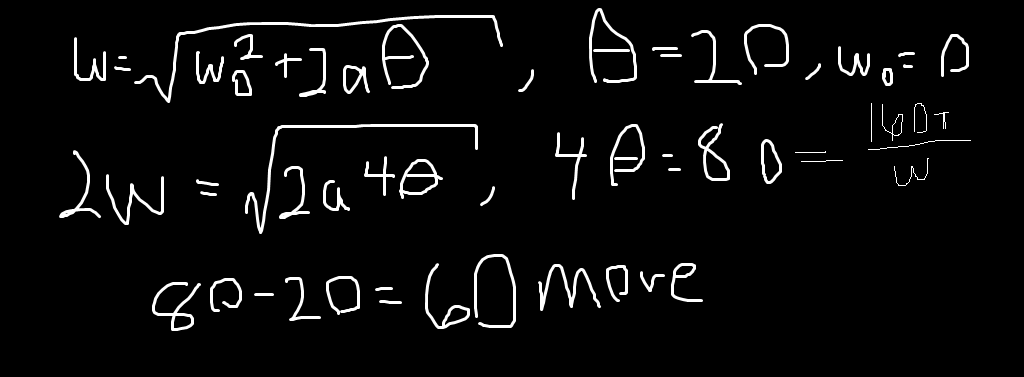 w = √(w₀² + 2aθ) , θ = 20 , w₀ = 0
2w = √(2a4θ) , 4θ = 80 = 160π/w
80 - 20 = 60 more